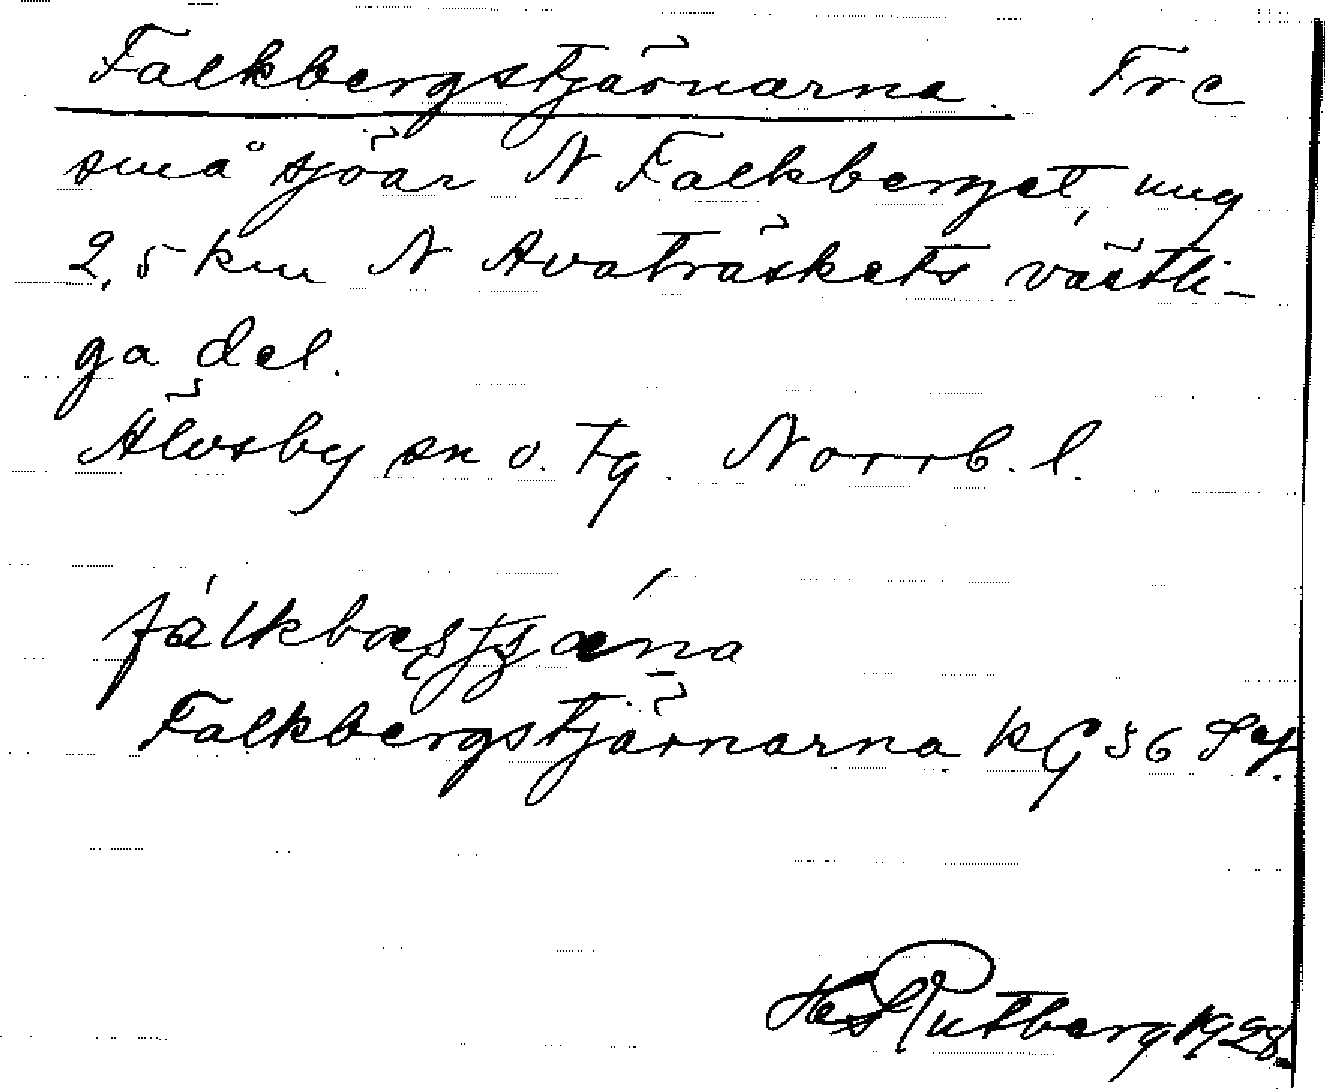 Falkbergstjärnarna. Tre
små sjöar N Falkberget, ung
2,5 km N Avaträskets västli-
ga del.
Älvsby sn o. tg. Norrb. l.
Falkbergstjärnarna KG 36
Rutberg 1928.